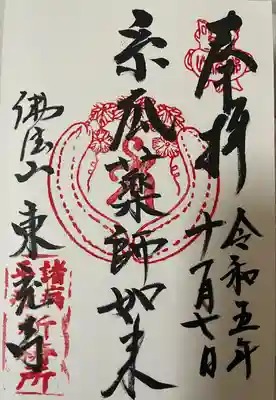 奉拝
令和五年
十一月七日
糸瓜薬師如来
佛法山
東光寺
諸願
祈祷所